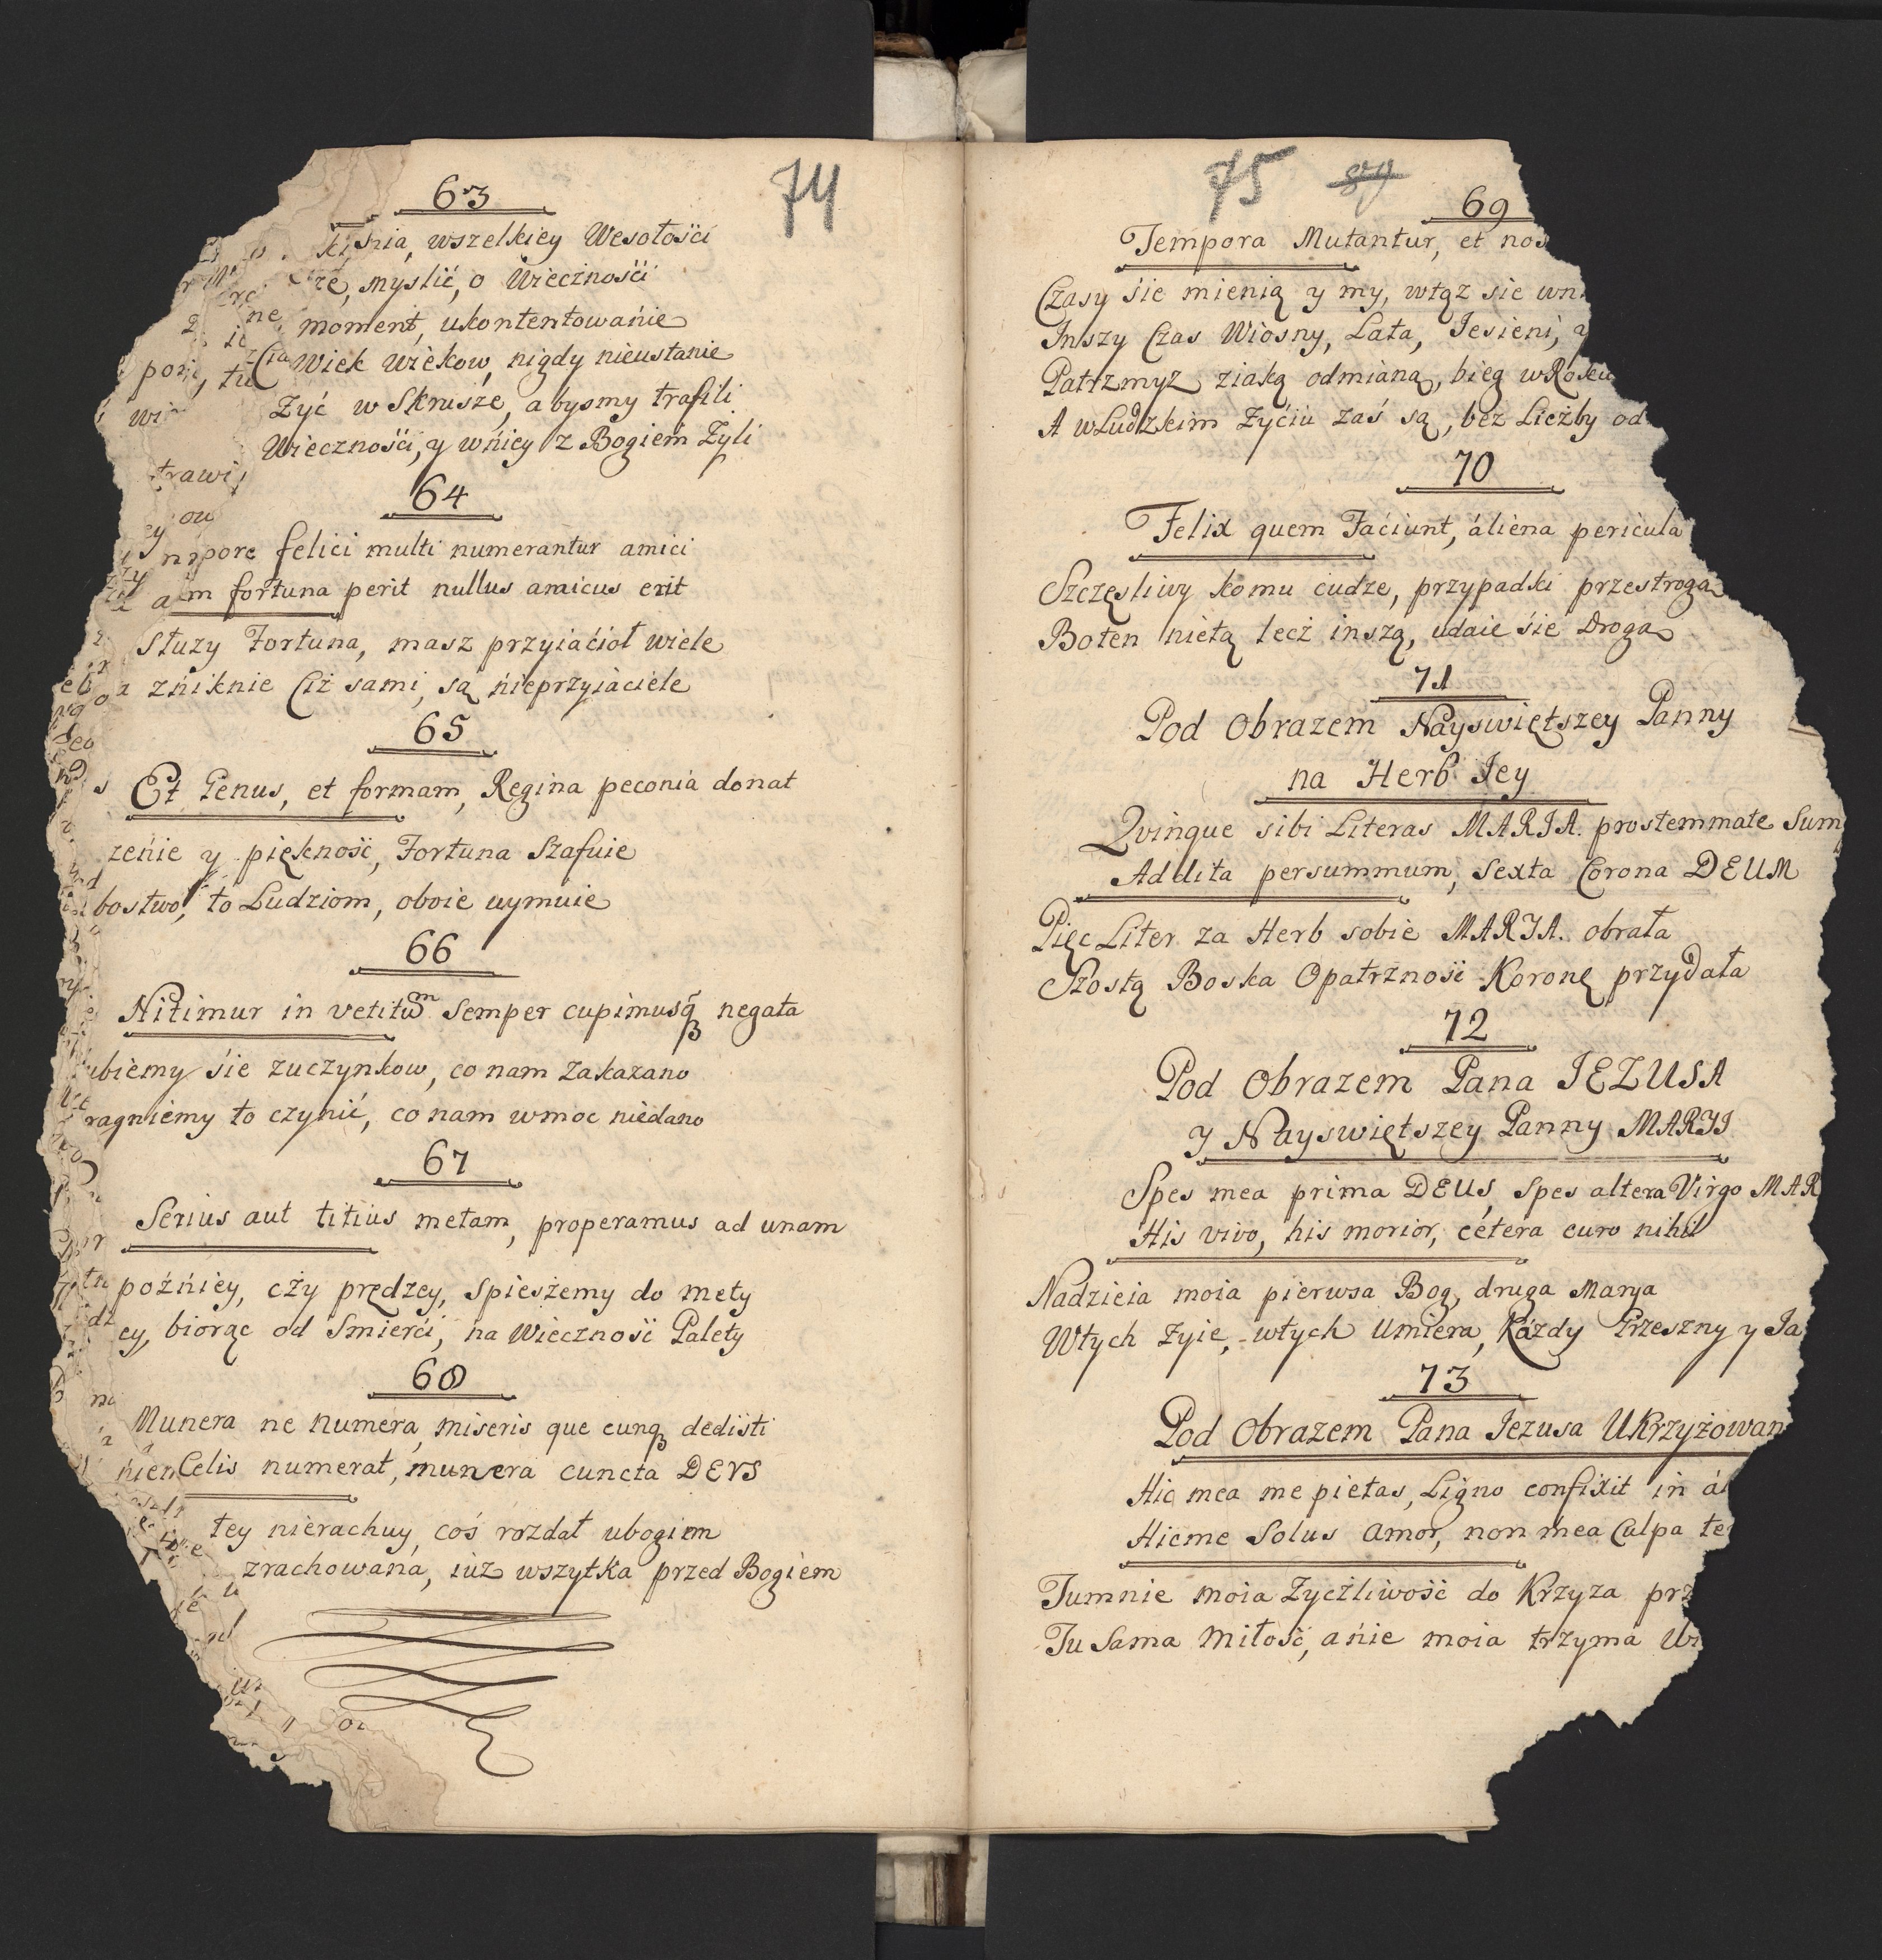 74
63
wszelkiey Wesołośći
myslić, o Wiecżnośći
moment, ukontentowańie
Wiek wiekow, nigdy nieustanie
Zyć w Skrusże, abysmy trafili
Wiecznośći, y wńiey z Bogiem Żyli
64
felici multi numerantur amici
fortuna perit nullus amicus erit
słuzy Fortuna, masz przyiaćioł wiele
zńiknie Ciż sami, są ńieprzyiaciele
65
Et Genus, et formam, Regina peconia donat
zeńie y pięknosć, Fortuna Szafuie
bostwo, to Ludziom, oboie uymuie
66
Nitimur in vetitum semper cupimusq negata
ubiemy śie zuczynkow, co nam Zakazano
ragniemy to czynić, co nam wmoc niedano
67
Serius aut titius metam, properamus ad unam
poźńiey, cży prędzey, Spiesżemy do mety
ey, biorąc od Smierći, na Wiecznosć Palety
68
Munera ne numera, miseris que cunq dedisti
Celis numerat, munera cuncta DEVS
tey nierachuy, coś rozdał ubogiem
zrachowana, iuż wszytka przed Bogiem
75
69
Tempora Mutantur, et nos
Czasy śie mienią y my, wtąz sie
Inszy Czas Wiosny, Lata, Jesieni, y
Patrzmyż ziaką odmianą, bieg
A wLudzkim Zyćiu zaś są, bez Licżby od
70
Felix quem Faciunt, áliena pericula
Szczęsliwy komu cudze, przypadki przestrogą
Boten nietą lecż inszą, udaie śie Drogą
71
Pod Obrazem Nayswiętszey Panny
na Herb Iey
Qvinque sibi Literas MARIA. prostemmate Sum
Addita persummum, sexta Corona DEUM
Pięc Liter za Herb sobie MARIA. obrała
Szostą Boska Opatrznosć Koronę przydała
72
Pod Obrazem Pana IEZUSA
y Nayswiętszey Panny MARII
Spes mea prima DEUS, Spes altera Virgo MAR
His vivo, his morior, cétera curo nihil
Nadzieia moia pierwsa Bog, druga Marya
Wtych żyie, wtych Umiera, Kázdy Grzeszny y Ja
73
Pod Obrazem Pana Iezusa UKrzyżowan
Hic mea me pietas, Ligno confixit in
Hicme Solus amor, non mea Culpa te
Tumnie moia Zycżliwosć do Krzyza prz
Tu Sama Miłosć, ańie moia trzyma